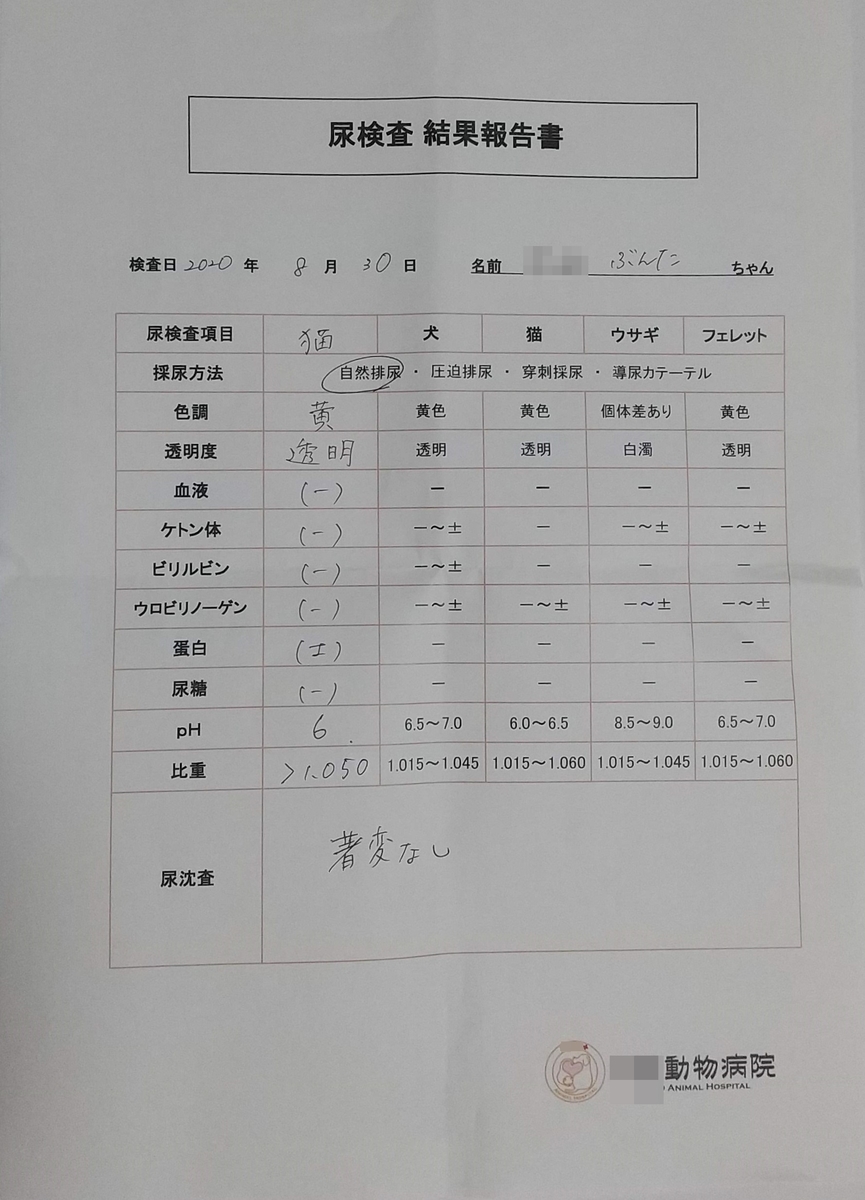 尿検査 結果報告書
検査日 2020 年 8 月 30 日 名前 ぶんた ちゃん
尿検査項目 猫 犬 猫 ウサギ フェレット
採尿方法 自然排尿 ・ 圧迫排尿 ・ 穿刺採尿 ・ 導尿カテーテル
色調 黄 黄色 黄色 個体差あり 黄色
透明度 透明 透明 透明 白濁 透明
血液 (-) － － － －
ケトン体 (-) －～± － －～± －～±
ビリルビン (-) －～± － － －
ウロビリノーゲン (-) －～± －～± －～± －～±
蛋白 (±) － － － －
尿糖 (-) － － － －
pH 6. 6.5～7.0 6.0～6.5 8.5～9.0 6.5～7.0
比重 >1.050 1.015～1.045 1.015～1.060 1.015～1.045 1.015～1.060
尿沈査 著変なし
動物病院
ANIMAL HOSPITAL